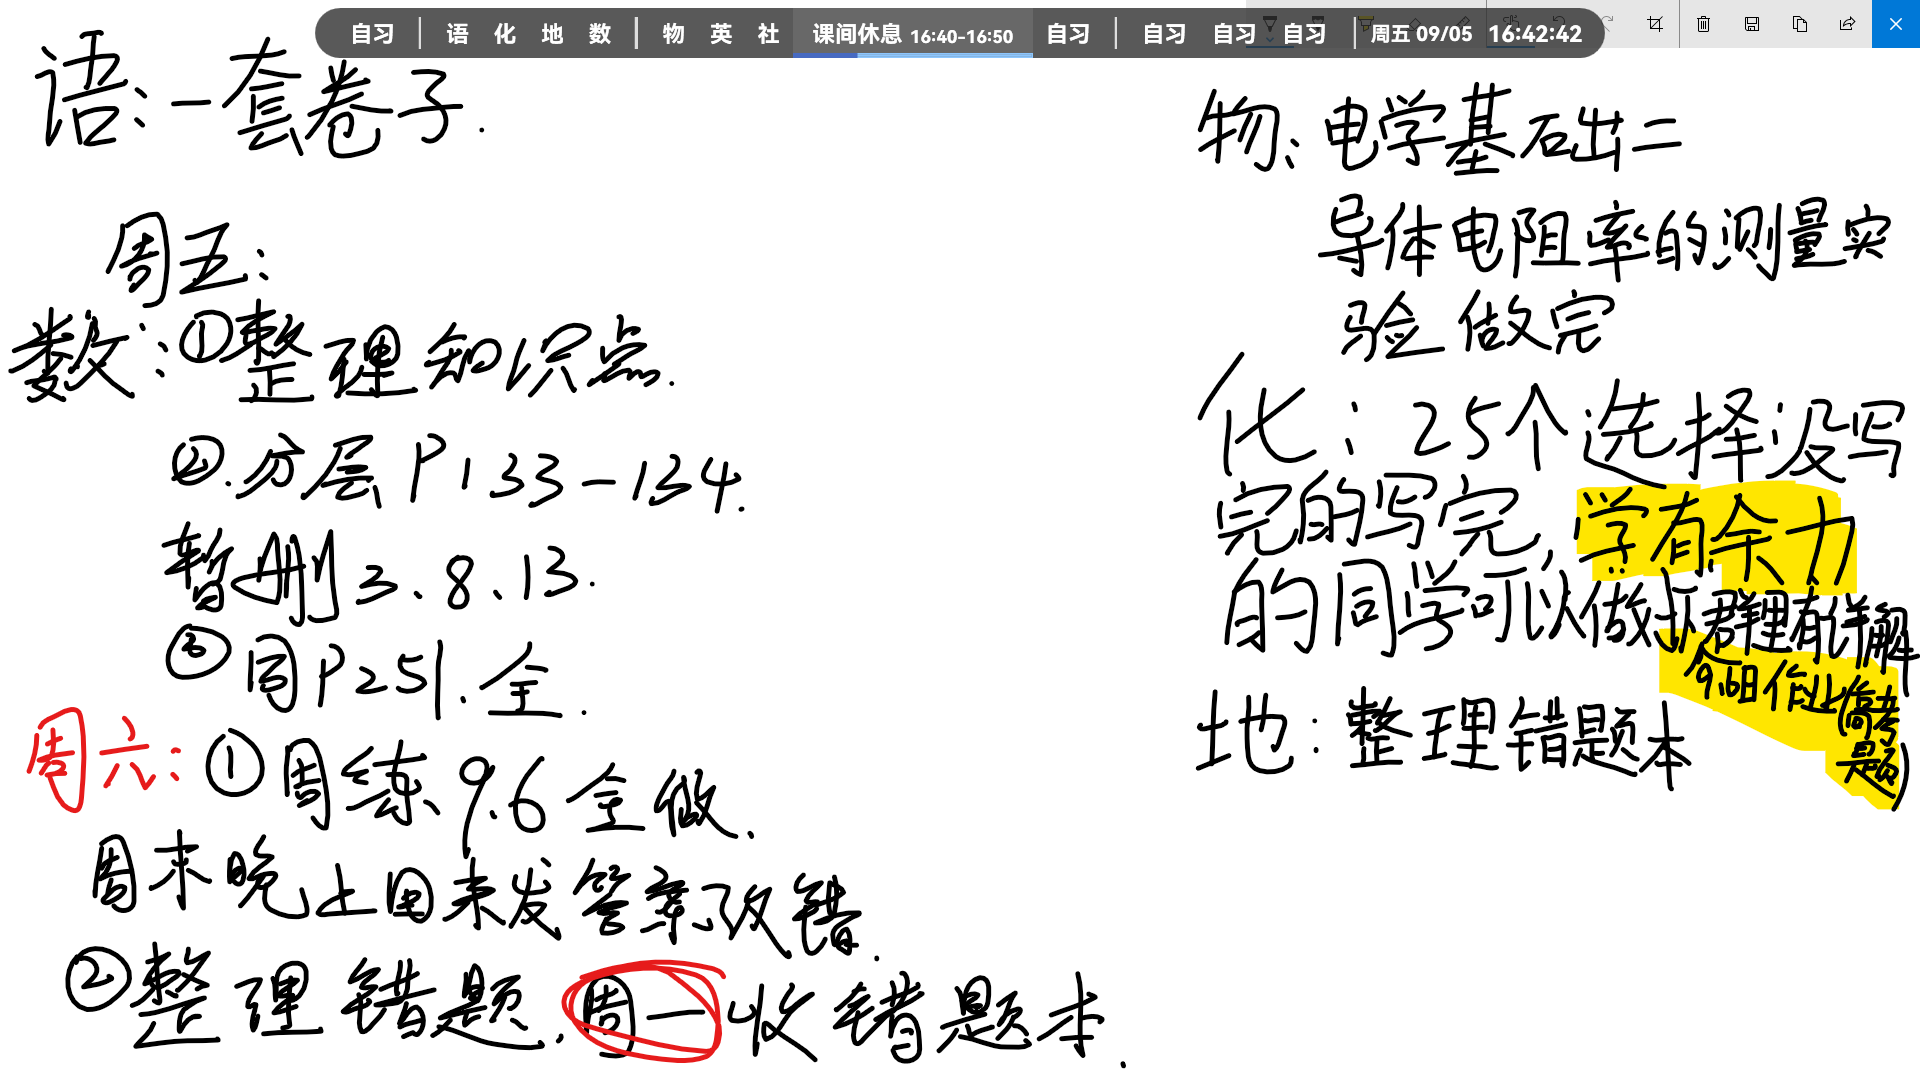 自习 | 语 化 地 数 | 物 英 社 课间休息 16:40-16:50 自习 | 自习 自习 自习 | 周五 09/05 16:42:42
语:一套卷子.
周五:
数:①整理知识点.
②.分层P133-134.
暂删3、8、13.
③同P251.全.
周六:①周练9.6全做.
周末晚上回来发答案改错.
②整理错题,周一收错题本.
物:电学基础二
导体电阻率的测量实
验做完
化:25个选择没写
完的写完,学有余力
的同学可以做
群里有详解
9.6日作业(高考
题)
地:整理错题本